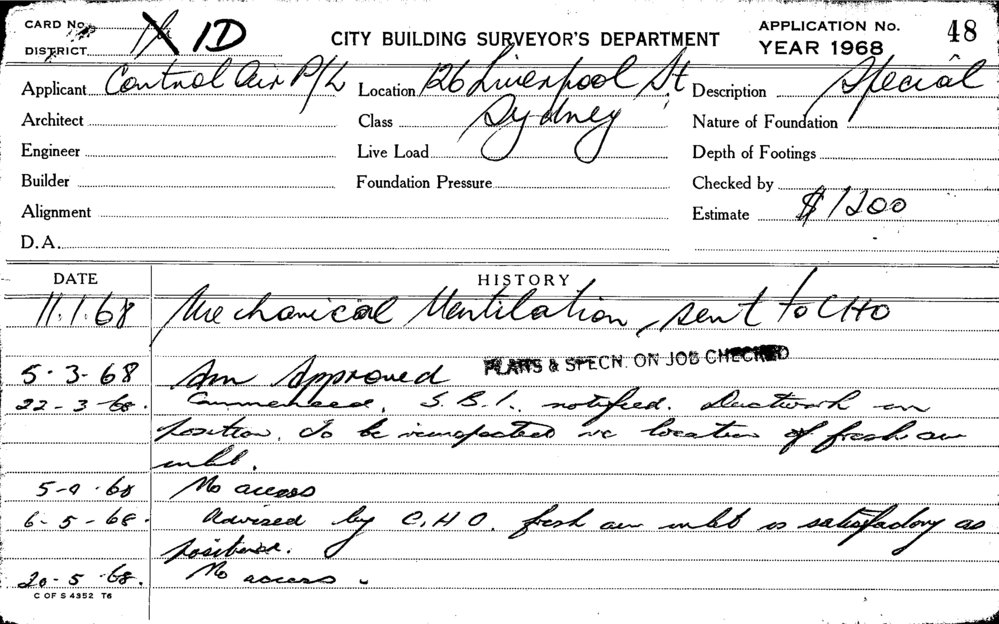 CARD No.
DISTRICT 1D
CITY BUILDING SURVEYOR'S DEPARTMENT
APPLICATION No. 48
YEAR 1968
Applicant Control Air P/L Location 126 Liverpool St Description Special
Architect Class Sydney Nature of Foundation
Engineer Live Load Depth of Footings
Builder Foundation Pressure Checked by
Alignment Estimate $1200
D.A.
DATE HISTORY
11.1.68 Mechanical Ventilation, sent to CHO
5-3-68 Am Approved PLANS & SPECN. ON JOB CHECKED
22-3-68. Commenced, S.B.I. notified. Ductwork in
position. To be reinspected re location of fresh air
inlet.
68 No access
6-5-68. Advised by C.H.O. fresh air inlet is satisfactory as
positioned.
20-5-68. No access.
C OF S 4352 T6